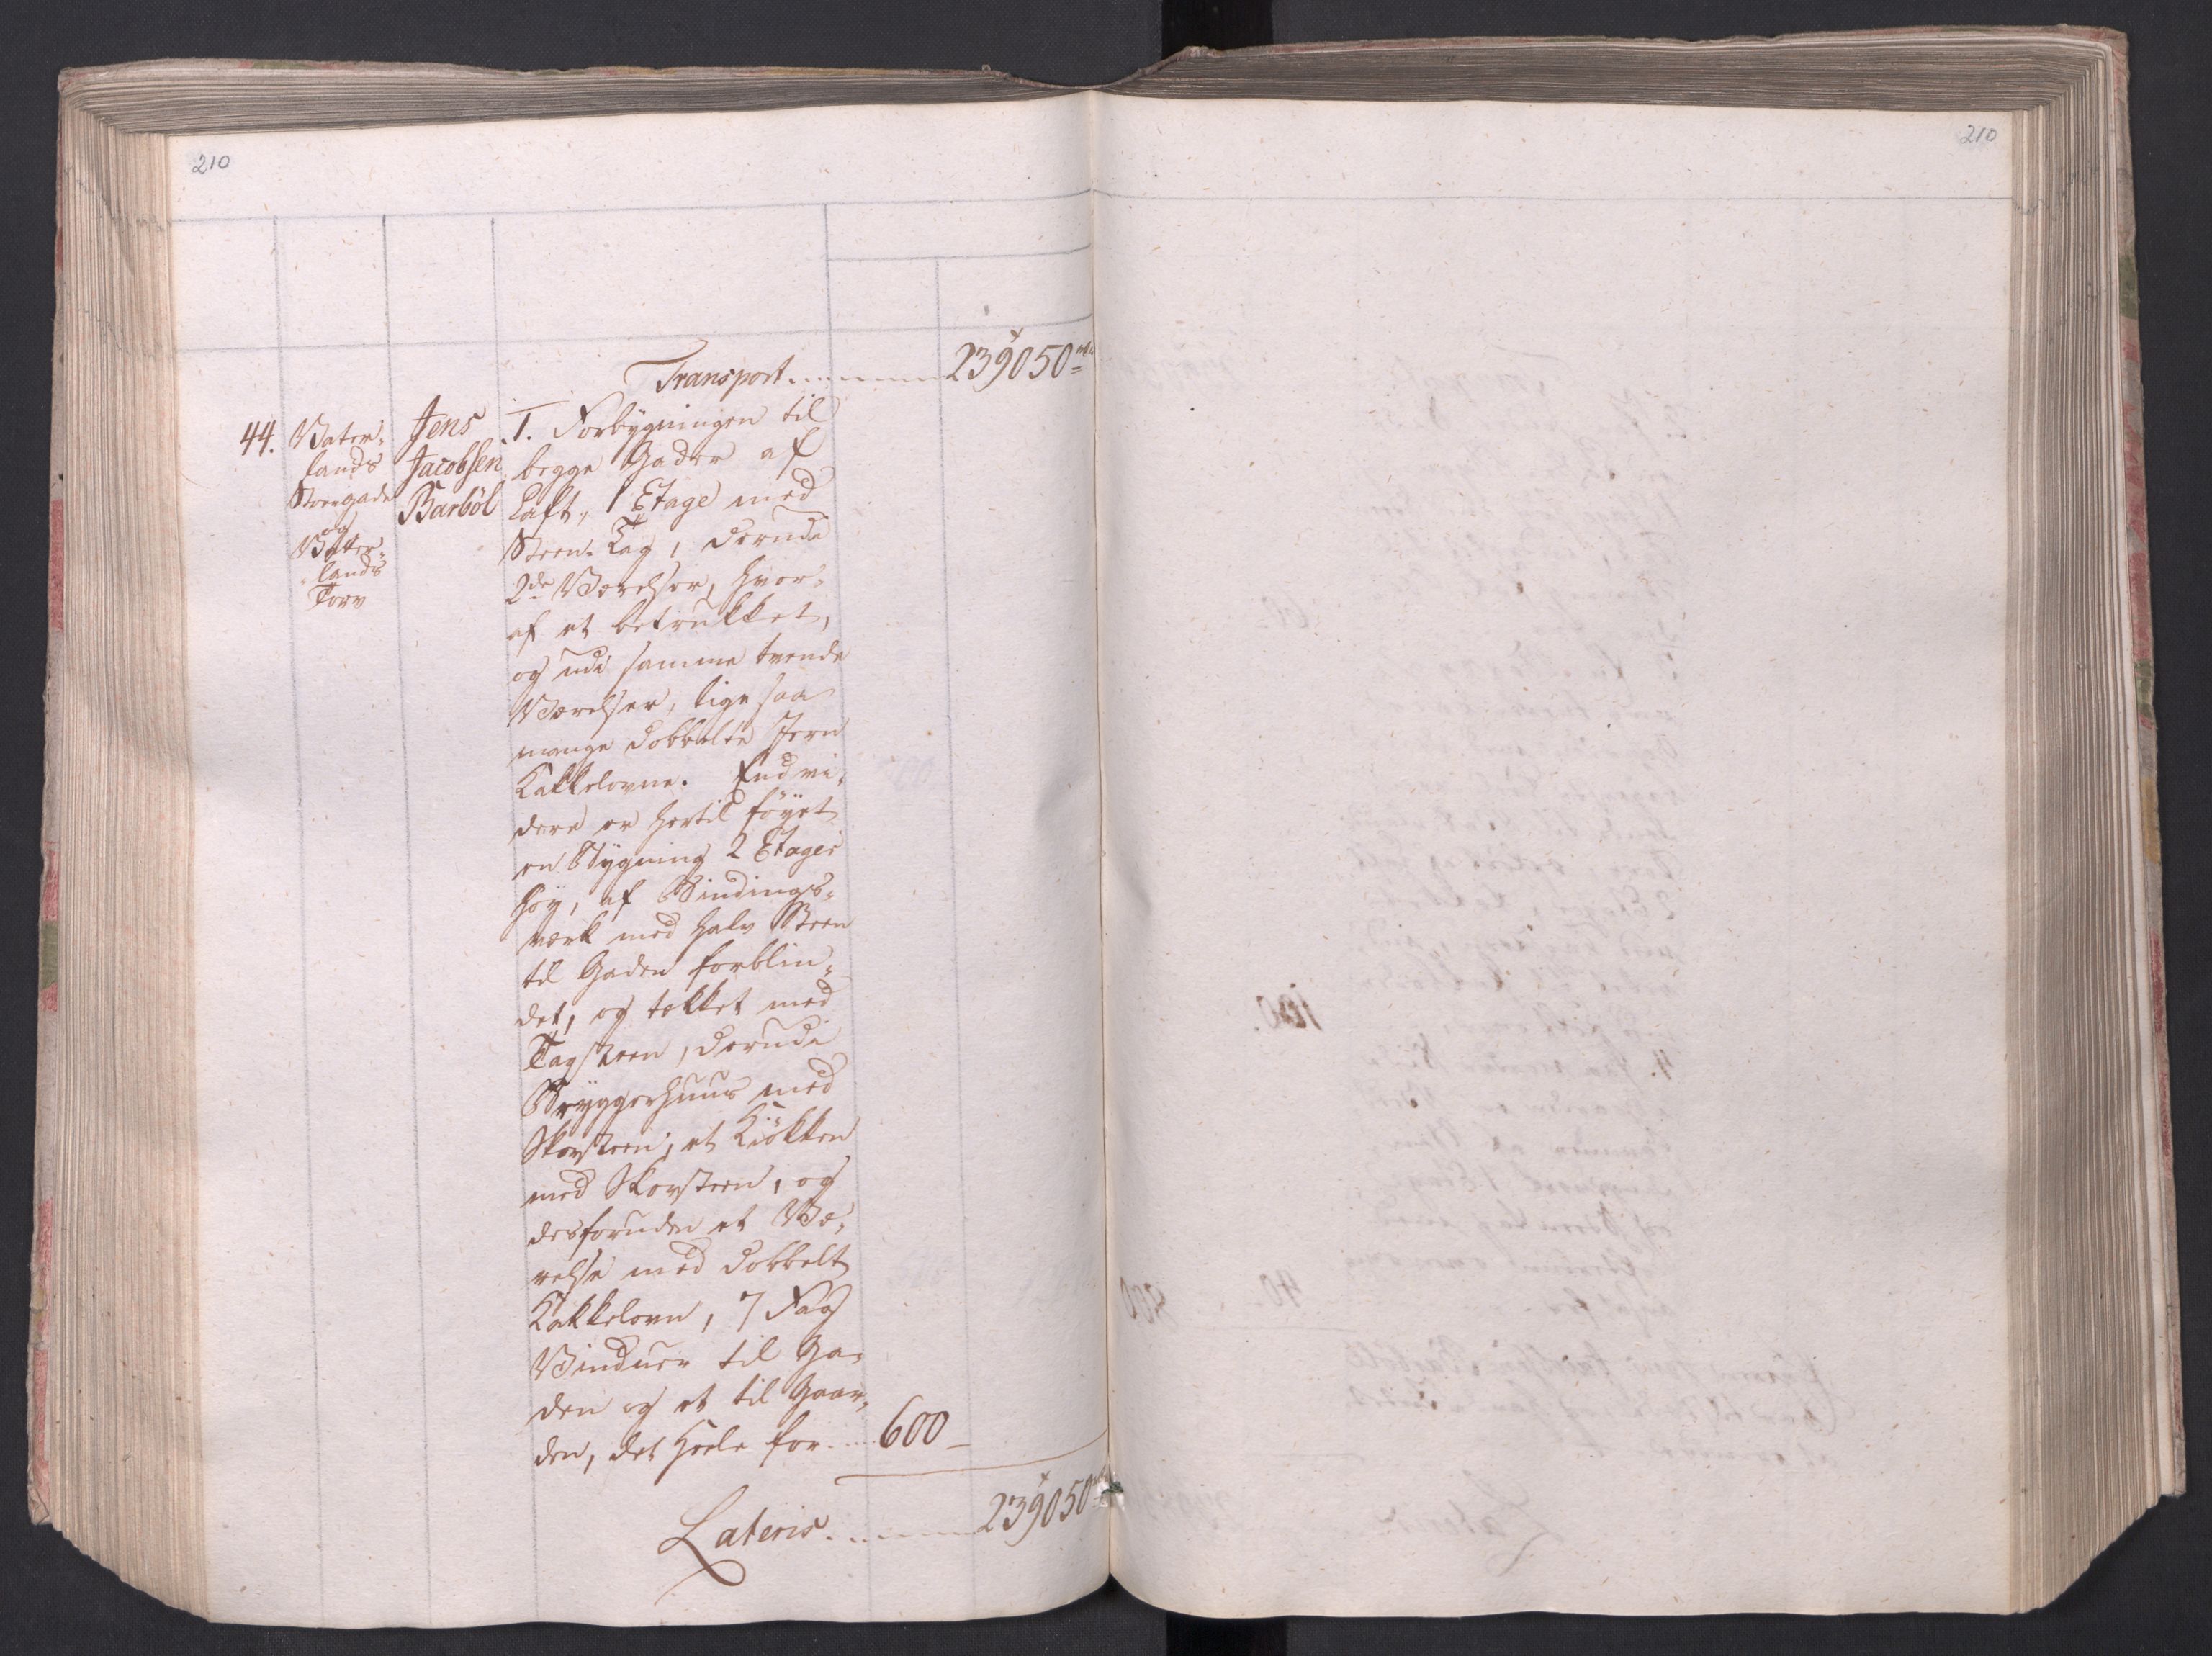 210
210
Transport ........ 239050
44.
Vater-
lands
Storgade
og
Vater-
lands
Torv
Jens
Jacobsen
Barböl
1. Forbygningen til
begge Gader af
Laft, 1 Etage med
Steen-Tag, derudi
2de Værelser, hvor-
af et betrukket,
og udi samme tvende
Værelser, lige saa
mange dobbelte Jern
Kakkelovne. Endvi-
dere er hertil föyet
en Bygning 2 Etager
höy, af Bindings-
værk med halv Steen
til Gaden forblin-
det, og tækket med
Tagsteen, derudi
Bryggerhuus med
Skorsteen, et Kiökken
med Skorsteen, og
desforuden et Væ-
relse med dobbelt
Kakkelovn, 7 Fag
Vinduer til Ga-
den og et til Gaar-
den, det Heele for .... 600
Lateris ........ 239050